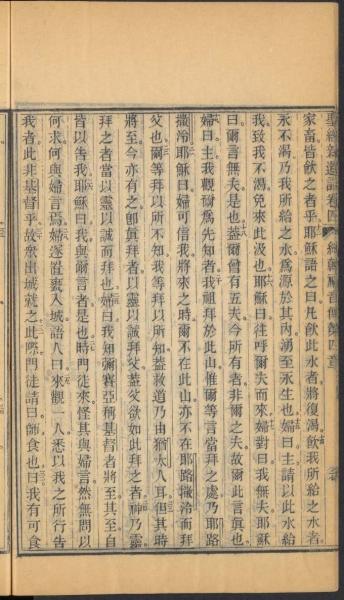 聖經新遺詔卷四 約翰福音傳第四章
家畜皆飲之者乎耶穌語之曰凡飲此水者將復渴飲我所給之水者
永不渴乃我所給之水爲源於其內湧至永生也婦曰主請以此水給
我致我不渴免來此汲也耶穌曰往呼爾夫而來婦對曰我無夫耶穌
曰爾言無夫是也蓋爾曾有五夫今所有者非爾之夫故爾此言眞也
婦曰主我觀爾爲先知者我祖拜於此山惟爾等言當拜之處乃耶路
撒泠耶穌曰婦可信我將來之時爾不在此山亦不在耶路撒泠而拜
父也爾等拜以所不知我等拜以所知蓋救道乃由猶太人耳但其時
將至今亦有之卽眞拜者以靈以誠拜父蓋父欲如此拜之者神乃靈
拜之者當以靈以誠而拜也婦曰我知彌賽亞稱基督者將至其至自
皆以告我耶穌曰我與爾言者是也時門徒來怪其與婦言然無問以
何求何與婦言焉婦遂置甕入城語人曰來觀一人悉以我之所行告
我者此非基督乎故衆出城就之此際門徒請曰師食也曰我有可食